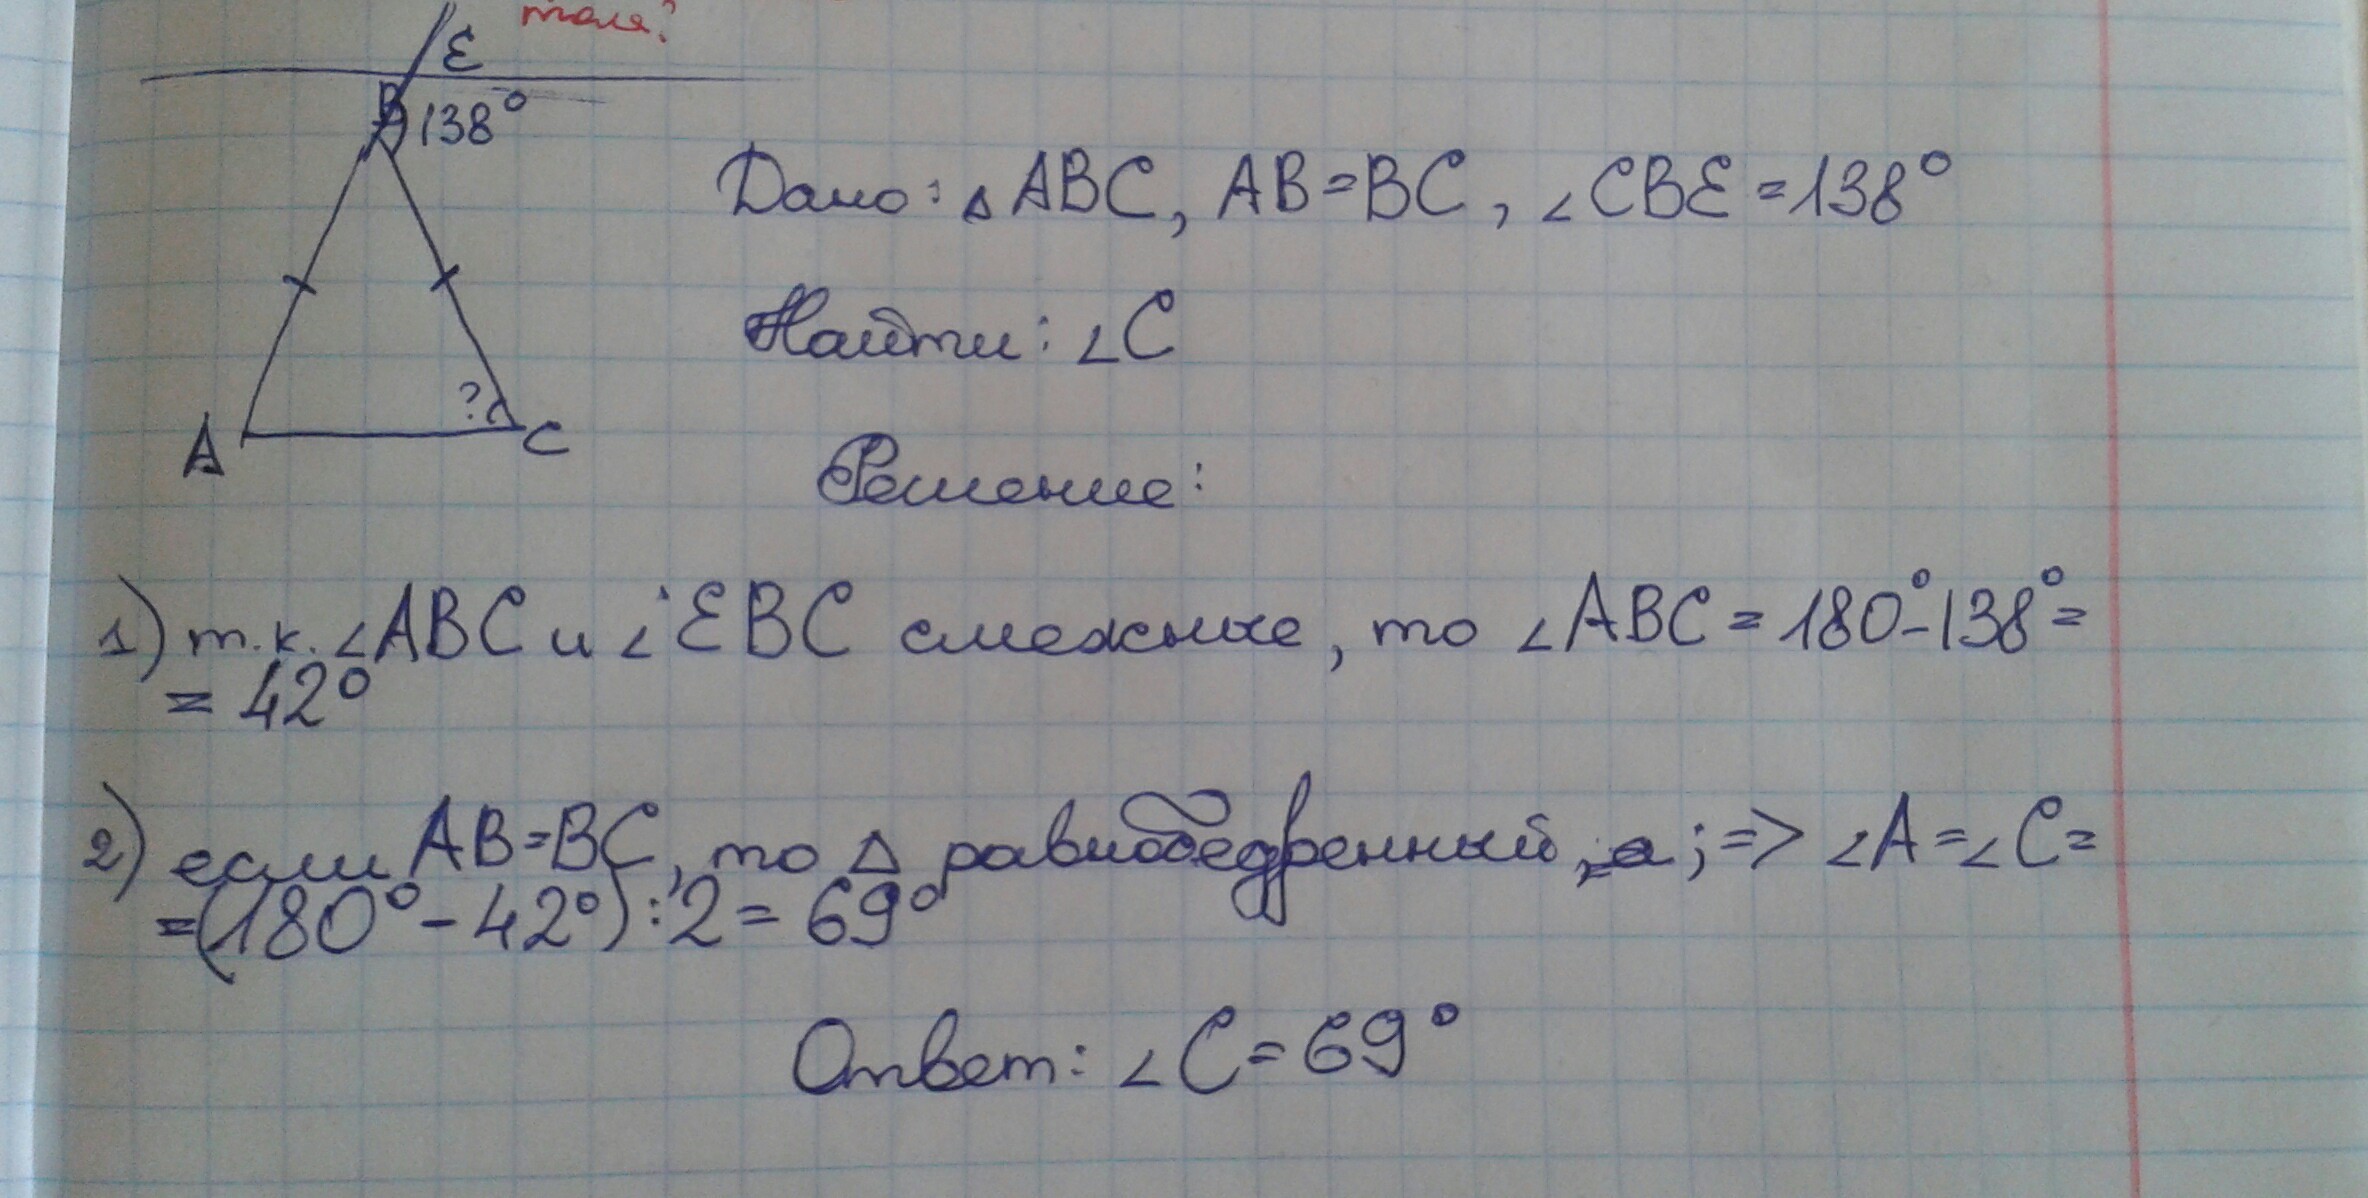 толя?
E
B
138°
Дано: △ABC, AB=BC, ∠CBE=138°
Найти: ∠C
?
A
C
Решение:
1) т.к. ∠ABC и ∠EBC смежные, то ∠ABC = 180°-138°=
= 42°
2) если AB=BC, то △ равнобедренный, ; => ∠A=∠C=
=(180°-42°):2=69°
Ответ: ∠C=69°